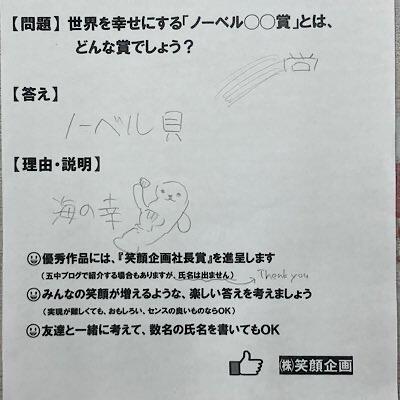 【問題】世界を幸せにする「ノーベル○○賞」とは、
どんな賞でしょう?
【答え】
ノーベル貝
【理由・説明】
海の幸
優秀作品には、『笑顔企画社長賞』を進呈します
(五中ブログで紹介する場合もありますが、氏名は出ません) → Thank you
みんなの笑顔が増えるような、楽しい答えを考えましょう
(実現が難しくても、おもしろい、センスの良いものならOK)
友達と一緒に考えて、数名の氏名を書いてもOK
㈱笑顔企画